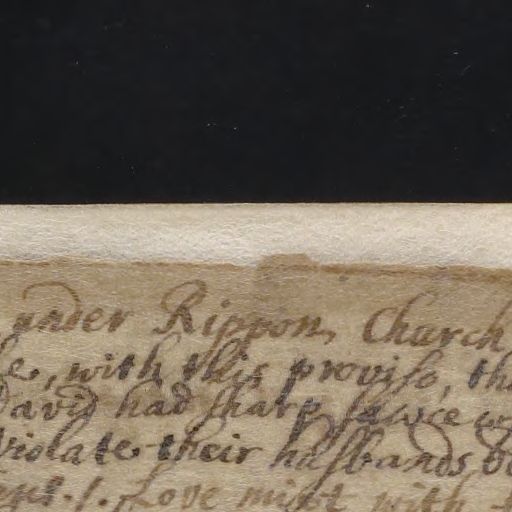 under Rippon, Church
e, with this proviso, th
David had sharp sawce w
violate their husbands be
eys ./. Love mixt with